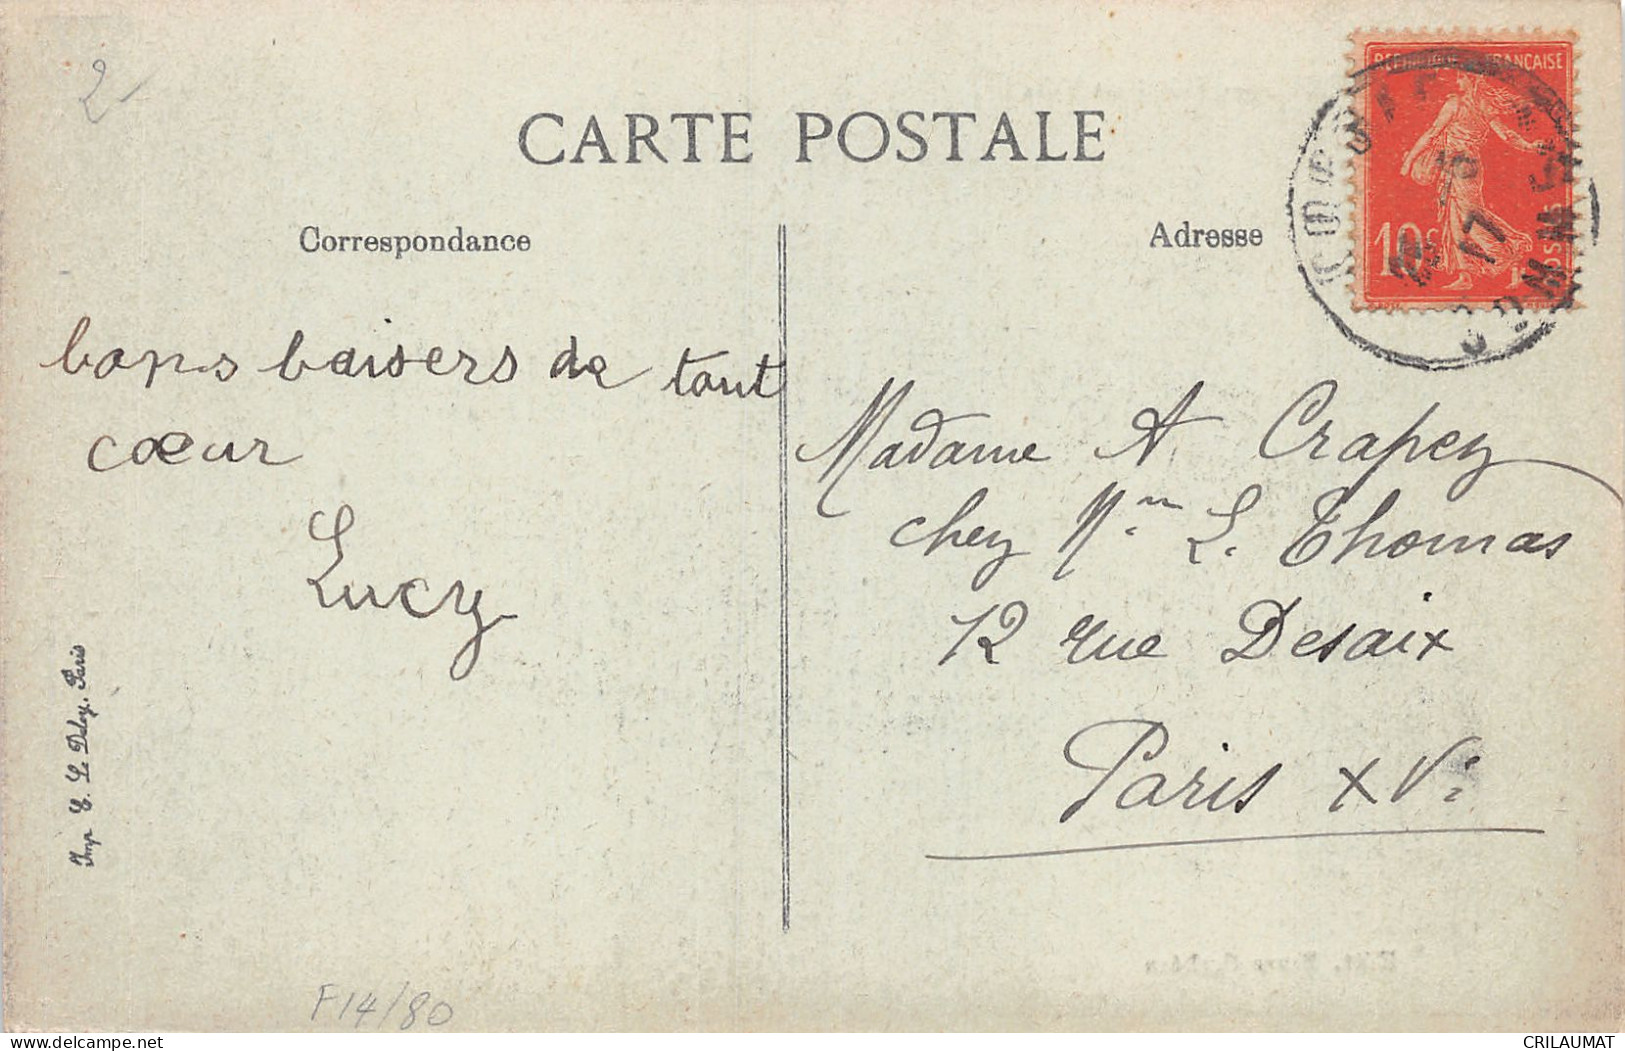 2
CARTE POSTALE
Correspondance
Adresse
REPUBLIQUE FRANÇAISE
10c
17
bons baisers de tout
cœur
Lucy
Madame A Crapez
chez Mm L. Thomas
12 rue Desaix
Paris XV
Imp E. Le Deley, Paris
F14/80
delcampe.net
CRILAUMAT